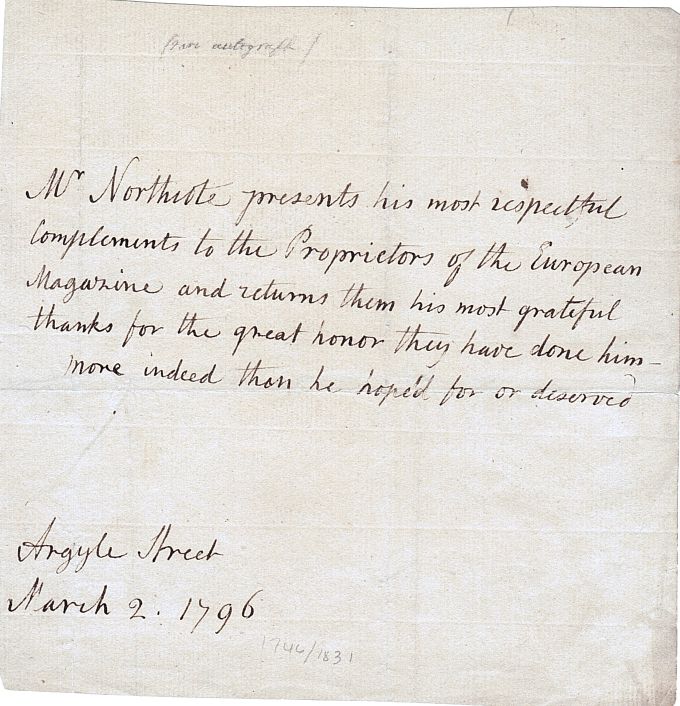 (rare autograph)
Mr Northcote presents his most respectful
Complements to the Proprietors of the European
Magazine and returns them his most grateful
thanks for the great honor they have done him—
more indeed than he hope'd for or deserved
Argyle Street
March 2. 1796
1746/1831